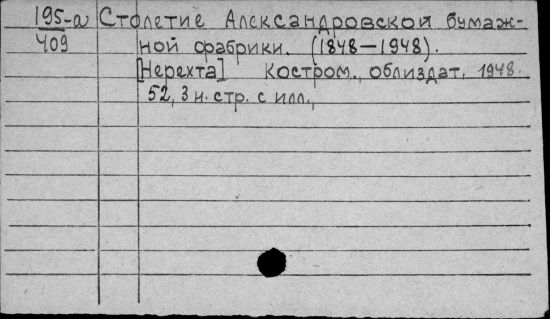 195-а Столетие Александровской бумаж-
409 ной фабрики. (1848-1948).
[Нерехта] Костром., облиздат, 1948.
52, 3 н. стр. с илл.,